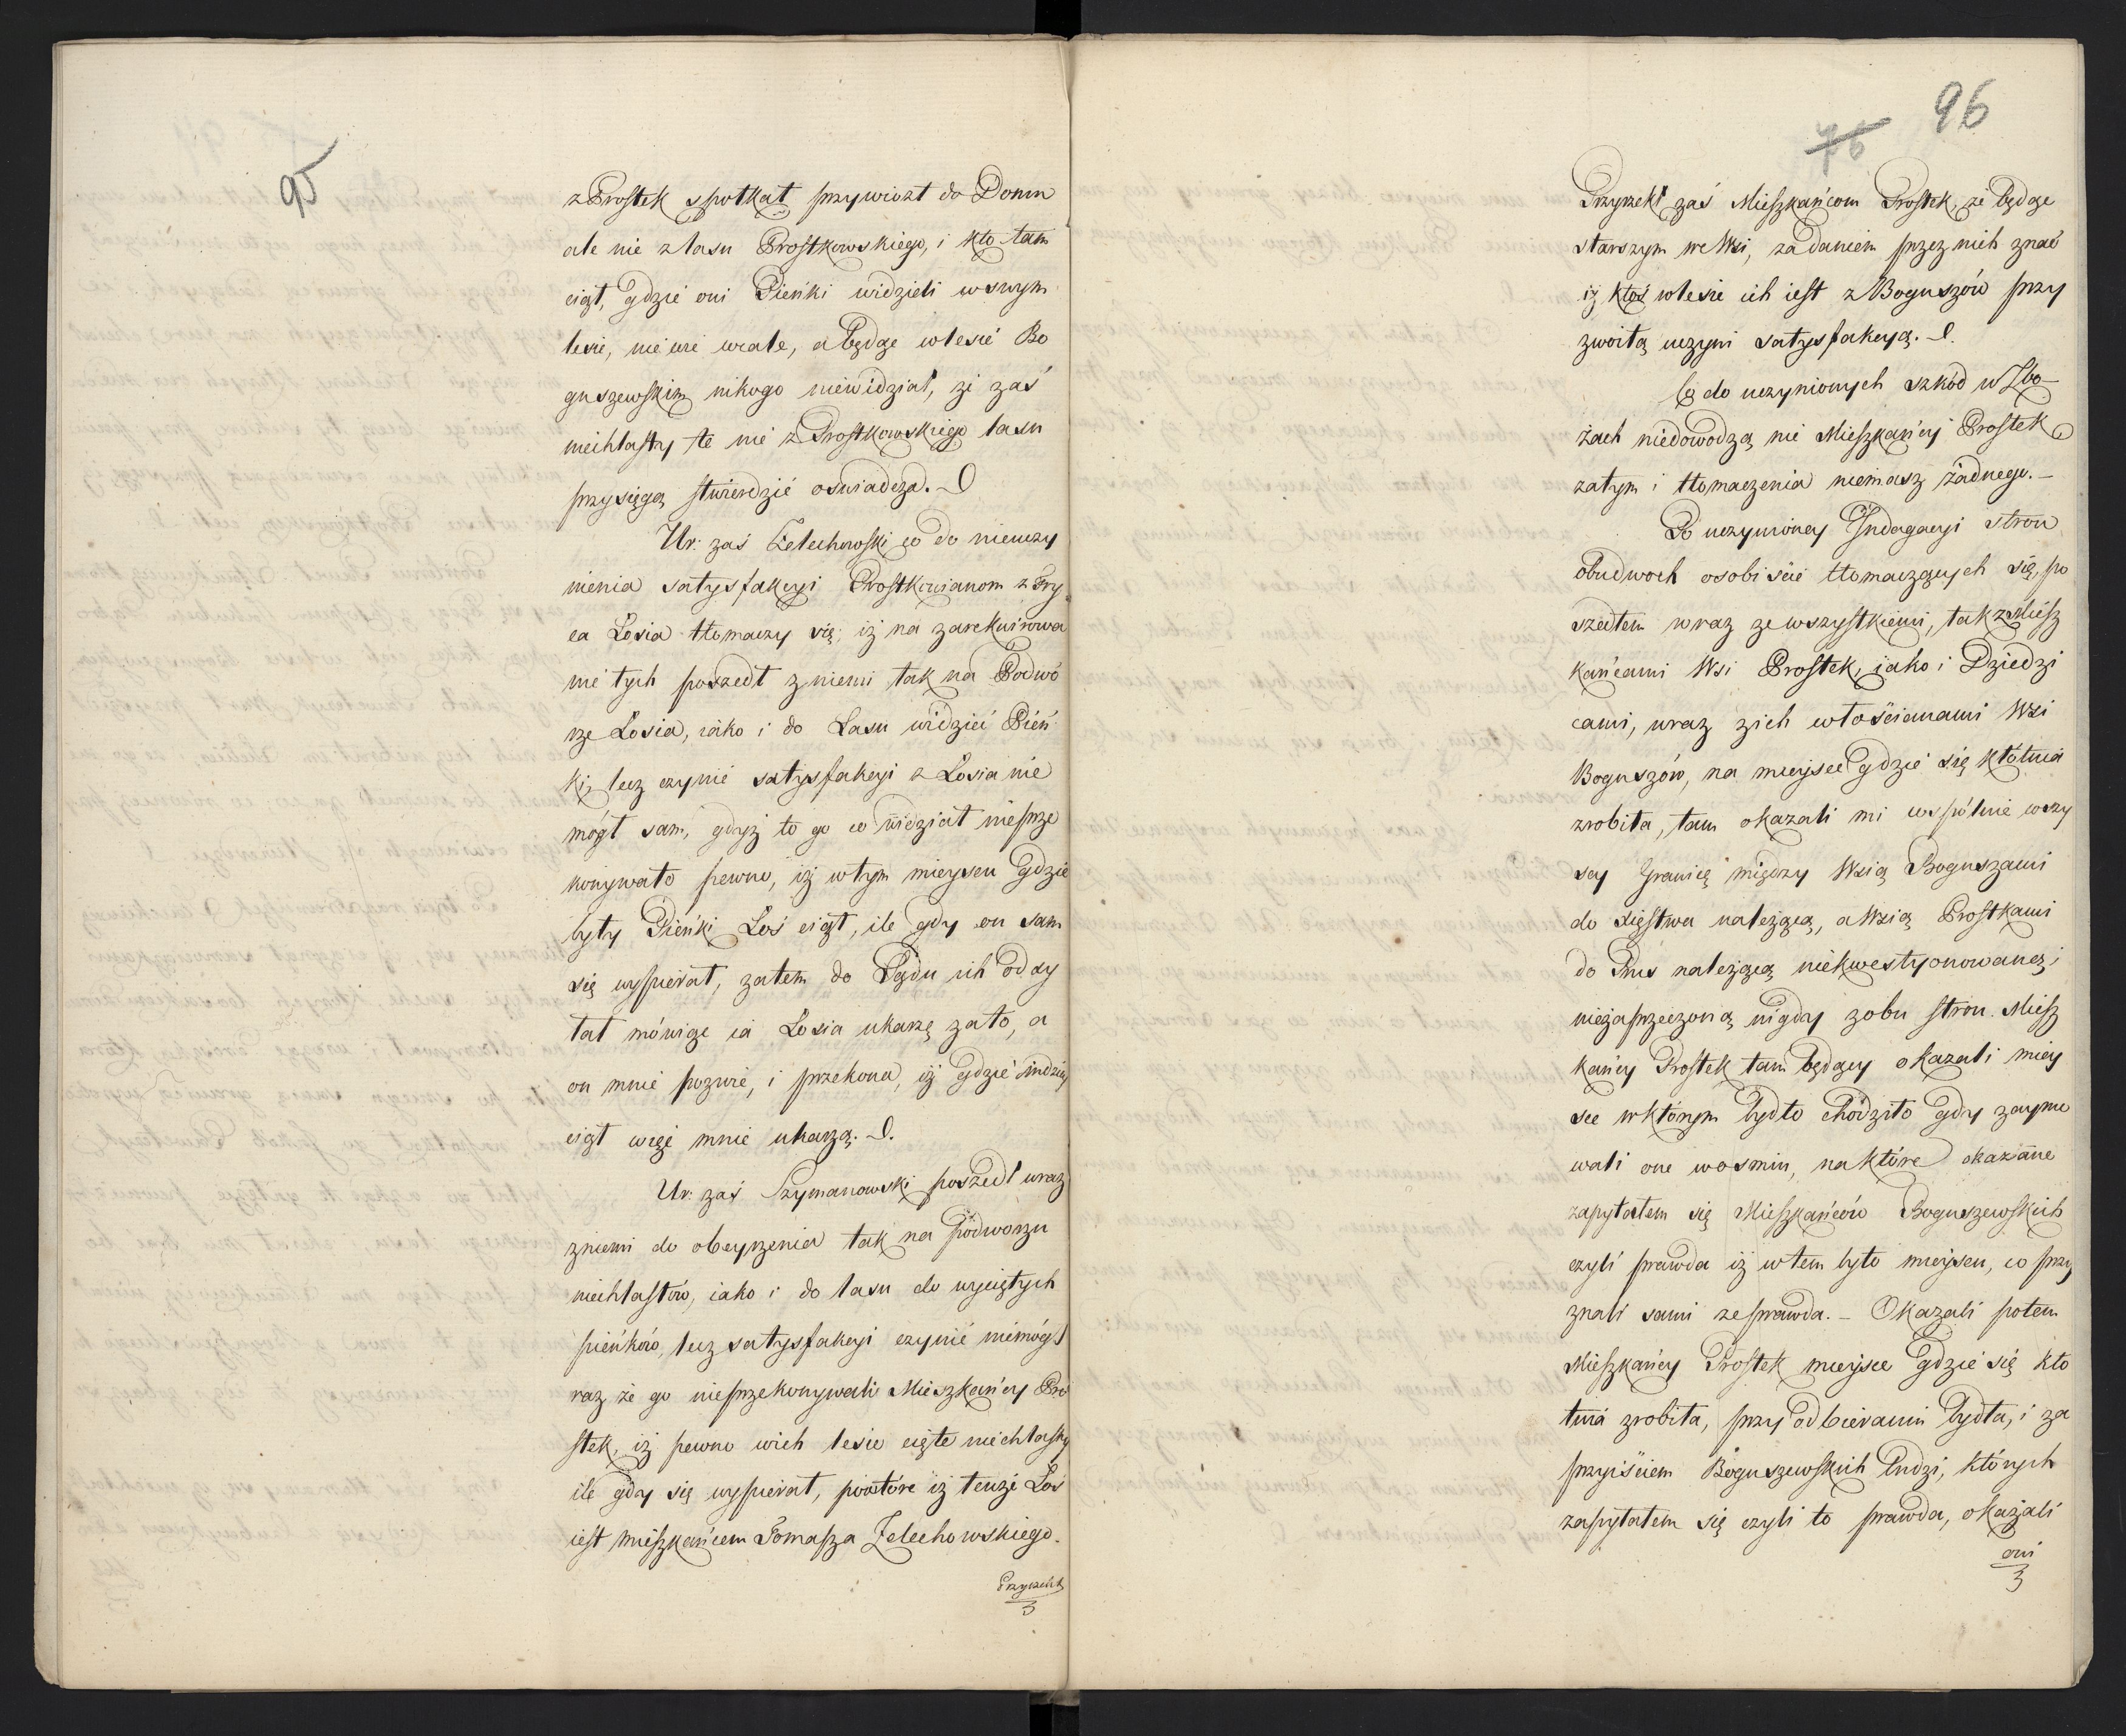 95
z Prostek spotkał przywiozł do Domu
ale nie z lasu Prostkowskiego, i kto tam
ciął, gdzie oni Pieńki widzieli w swym
lesie, nie wie wcale, a będąc w lesie Bo
guszewskim nikogo niewidział, że zaś
niechlasty te nie z Prostkowskiego lasu
przysięgą stwierdzić oświadcza.
Ur: zaś Zelechowski co do nieuczy
nienia satysfakcyi Prostkowianom z Fry
ca Losia tłomaczy się; iż na zarekwirowa
nie tych poszedł z niemi tak na Podwó
rze Łosia, iako i do Lasu widzieć Pień
ki, lecz czynić satysfakcyi z Łosia nie
mógł sam, gdyż to go co widział nieprze
konywało pewno, iż w tym mieyscu gdzie
były Pieńki Łoś ciął, ile gdy on sam
się wypierał, zatem do Sądu ich odsy
łał mówiąc ia Łosia ukarzę za to, a
on mnie pozwie, i przekona, iż gdzie indziey
ciął więc mnie ukarzą.
Ur: zaś Szymanowski poszedł wraz
z niemi do obeyrzenia tak na podworzu
niechlastów, iako i do lasu do wyciętych
pieńków, lecz satysfakcyi czynić niemógł
raz że go nieprzekonywali Mieszkańcy Pro
stek, iż pewno w ich lesie cięte niechlasty
ile gdy się wypierał, powtóre iż tenże Łoś
iest mieszkańcem Tomasza Zelechowskiego.
Przyrzekł
96
76
Przyrzekł zaś Mieszkańcom Prostek, że będąc
starszym we Wsi, za daniem przez nich znać
iż ktoś w lesie ich iest z Boguszów przy
zwoitą uczyni satysfakcyą.
Co do uczynionych szkód w Zbo
żach niedowodzą nic Mieszkańcy Prostek
zatym i tłomaczenia niemasz żadnego. –
Po uczynioney Indagacyi stron
obudwoch osobiście tłomaczących się, po
szedłem wraz ze wszystkiemi, tak z Miesz
kańcami Wsi Prostek, iako i Dziedzi
cami, wraz z ich włościanami Wsi
Boguszów, na mieysce gdzie się kłótnia
zrobiła, tam okazali mi wspólnie wszy
scy Granicę między Wsią Boguszami
do Xięstwa należącą, a Wsią Prostkami
do Prus należącą niekwestyonowaną i
niezaprzeczoną nigdy z obu stron. Miesz
kańcy Prostek tam będący okazali miey
sce w którym bydło chodziło gdy zaymo
wali one w osmiu, na które okazane
zapytałem się Mieszkańców Boguszewskich
czyli prawda iż w tem było mieyscu, co przy
znali sami ze prawda. – Okazali potem
Mieszkańcy Prostek mieysce gdzie się kłó
tnia zrobiła, przy odbieraniu bydła, i za
przyiściem Boguszewskich Ludzi, których
zapytałem się czyli to prawda, okazali
oni